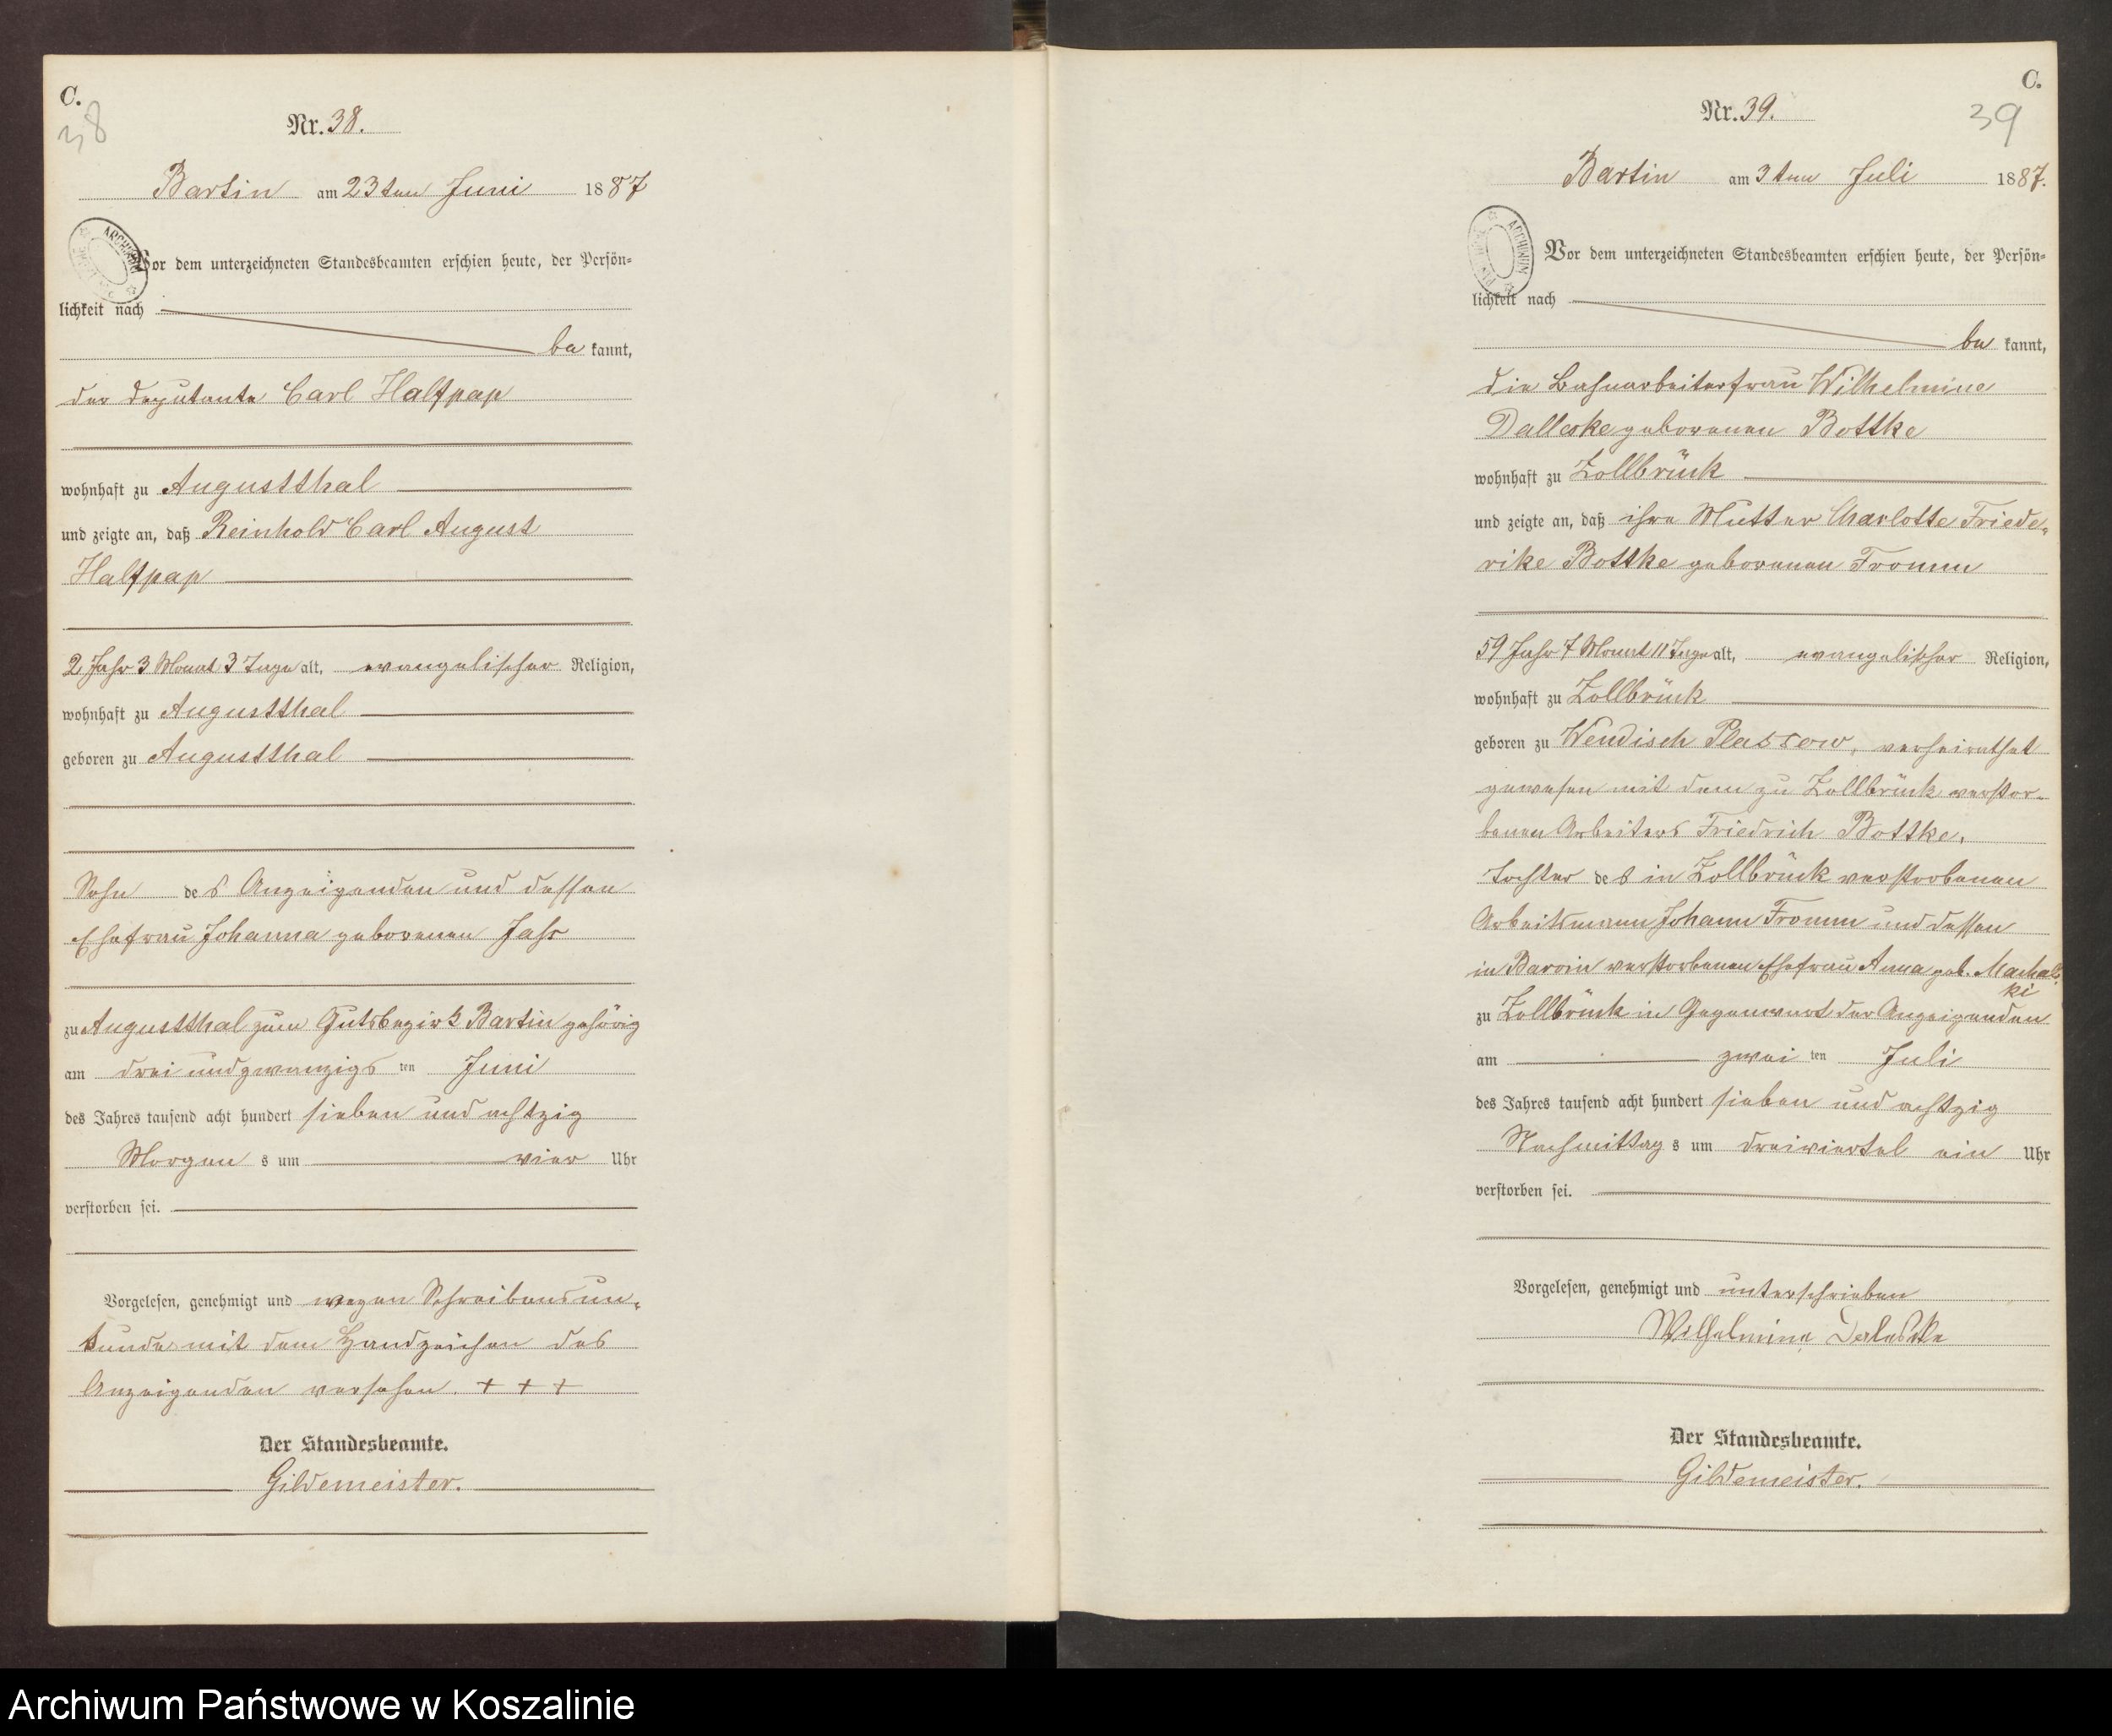 C.
38
Nr. 38.
Bartin am 23ten Juni 1887
Vor dem unterzeichneten Standesbeamten erschien heute, der Persön-
lichkeit nach
be kannt,
der Deputante Carl Halfpap
wohnhaft zu Augustthal
und zeigte an, daß Reinhold Carl August
Halfpap
2 Jahr 3 Monat 3 Tage alt, evangelischer Religion,
wohnhaft zu Augustthal
geboren zu Augustthal
Sohn des Anzeigenden und dessen
Ehefrau Johanna geborenen Jahr
zu Augustthal zum Gutsbezirk Bartin gehörig
am drei und zwanzigsten Juni
des Jahres tausend acht hundert sieben und achtzig
Morgens um vier Uhr
verstorben sei.
Vorgelesen, genehmigt und wegen Schreibensun-
kunde mit dem Handzeichen des
Anzeigenden versehen. + + +
Der Standesbeamte.
Gildemeister.
C.
39
Nr. 39.
Bartin am 3ten Juli 1887.
ARCHIWUM
Vor dem unterzeichneten Standesbeamten erschien heute, der Persön-
lichkeit nach
be kannt,
die Bahnarbeiterfrau Wilhelmine
Dalleske geborenen Bottke
wohnhaft zu Zollbrück
und zeigte an, daß ihre Mutter Charlotte Friede-
rike Bottke geborenen Fromm
59 Jahr 7 Monat 11 Tage alt, evangelischer Religion,
wohnhaft zu Zollbrück
geboren zu Wendisch Plassow, verheirathet
gewesen mit dem zu Zollbrück verstor-
benen Arbeiters Friedrich Bottke,
Tochter des in Zollbrück verstorbenen
Arbeitsmann Johann Fromm und dessen
in Barvin verstorbenen Ehefrau Anna geb. Machals
ki
zu Zollbrück in Gegenwart der Anzeigenden
am zweiten Juli
des Jahres tausend acht hundert sieben und achtzig
Nachmittags um dreiviertel ein Uhr
verstorben sei.
Vorgelesen, genehmigt und unterschrieben
Wilhelmine Daleske
Der Standesbeamte.
Gildemeister.
Archiwum Państwowe w Koszalinie